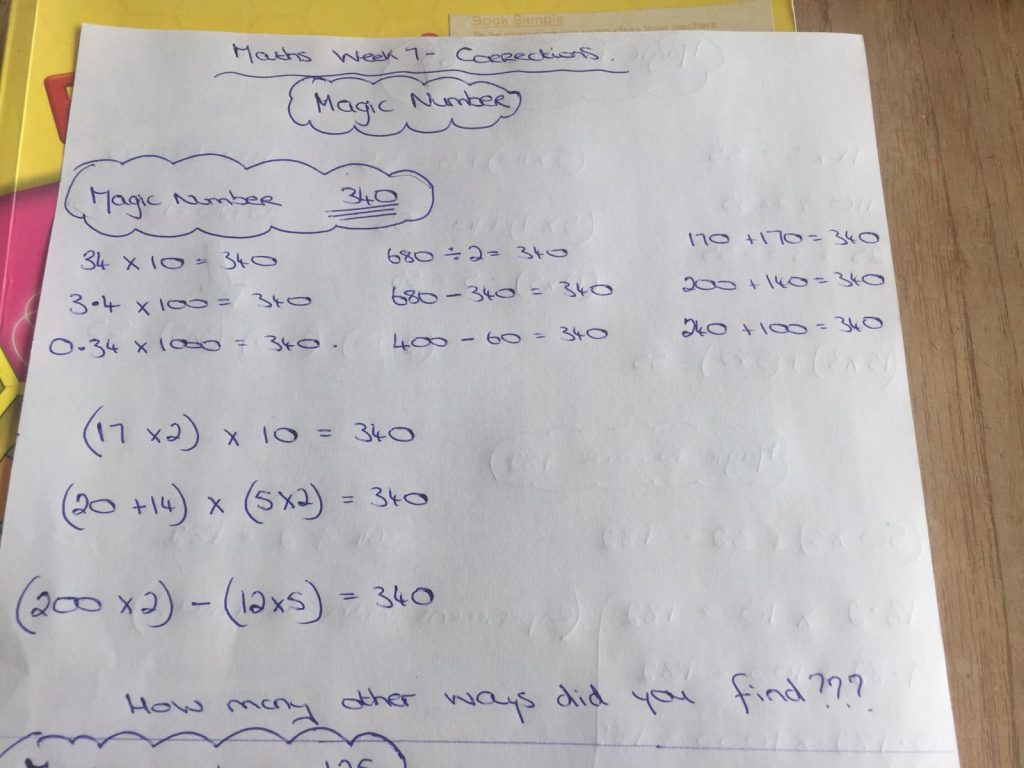 Book Sample
Maths Week 7 - Corrections.
Magic Number
Magic Number 340
34 x 10 = 340
3.4 x 100 = 340
0.34 x 1000 = 340.
680 ÷ 2 = 340
680 - 340 = 340
400 - 60 = 340
170 + 170 = 340
200 + 140 = 340
240 + 100 = 340
(17 x 2) x 10 = 340
(20 + 14) x (5 x 2) = 340
(200 x 2) - (12 x 5) = 340
How many other ways did you find???